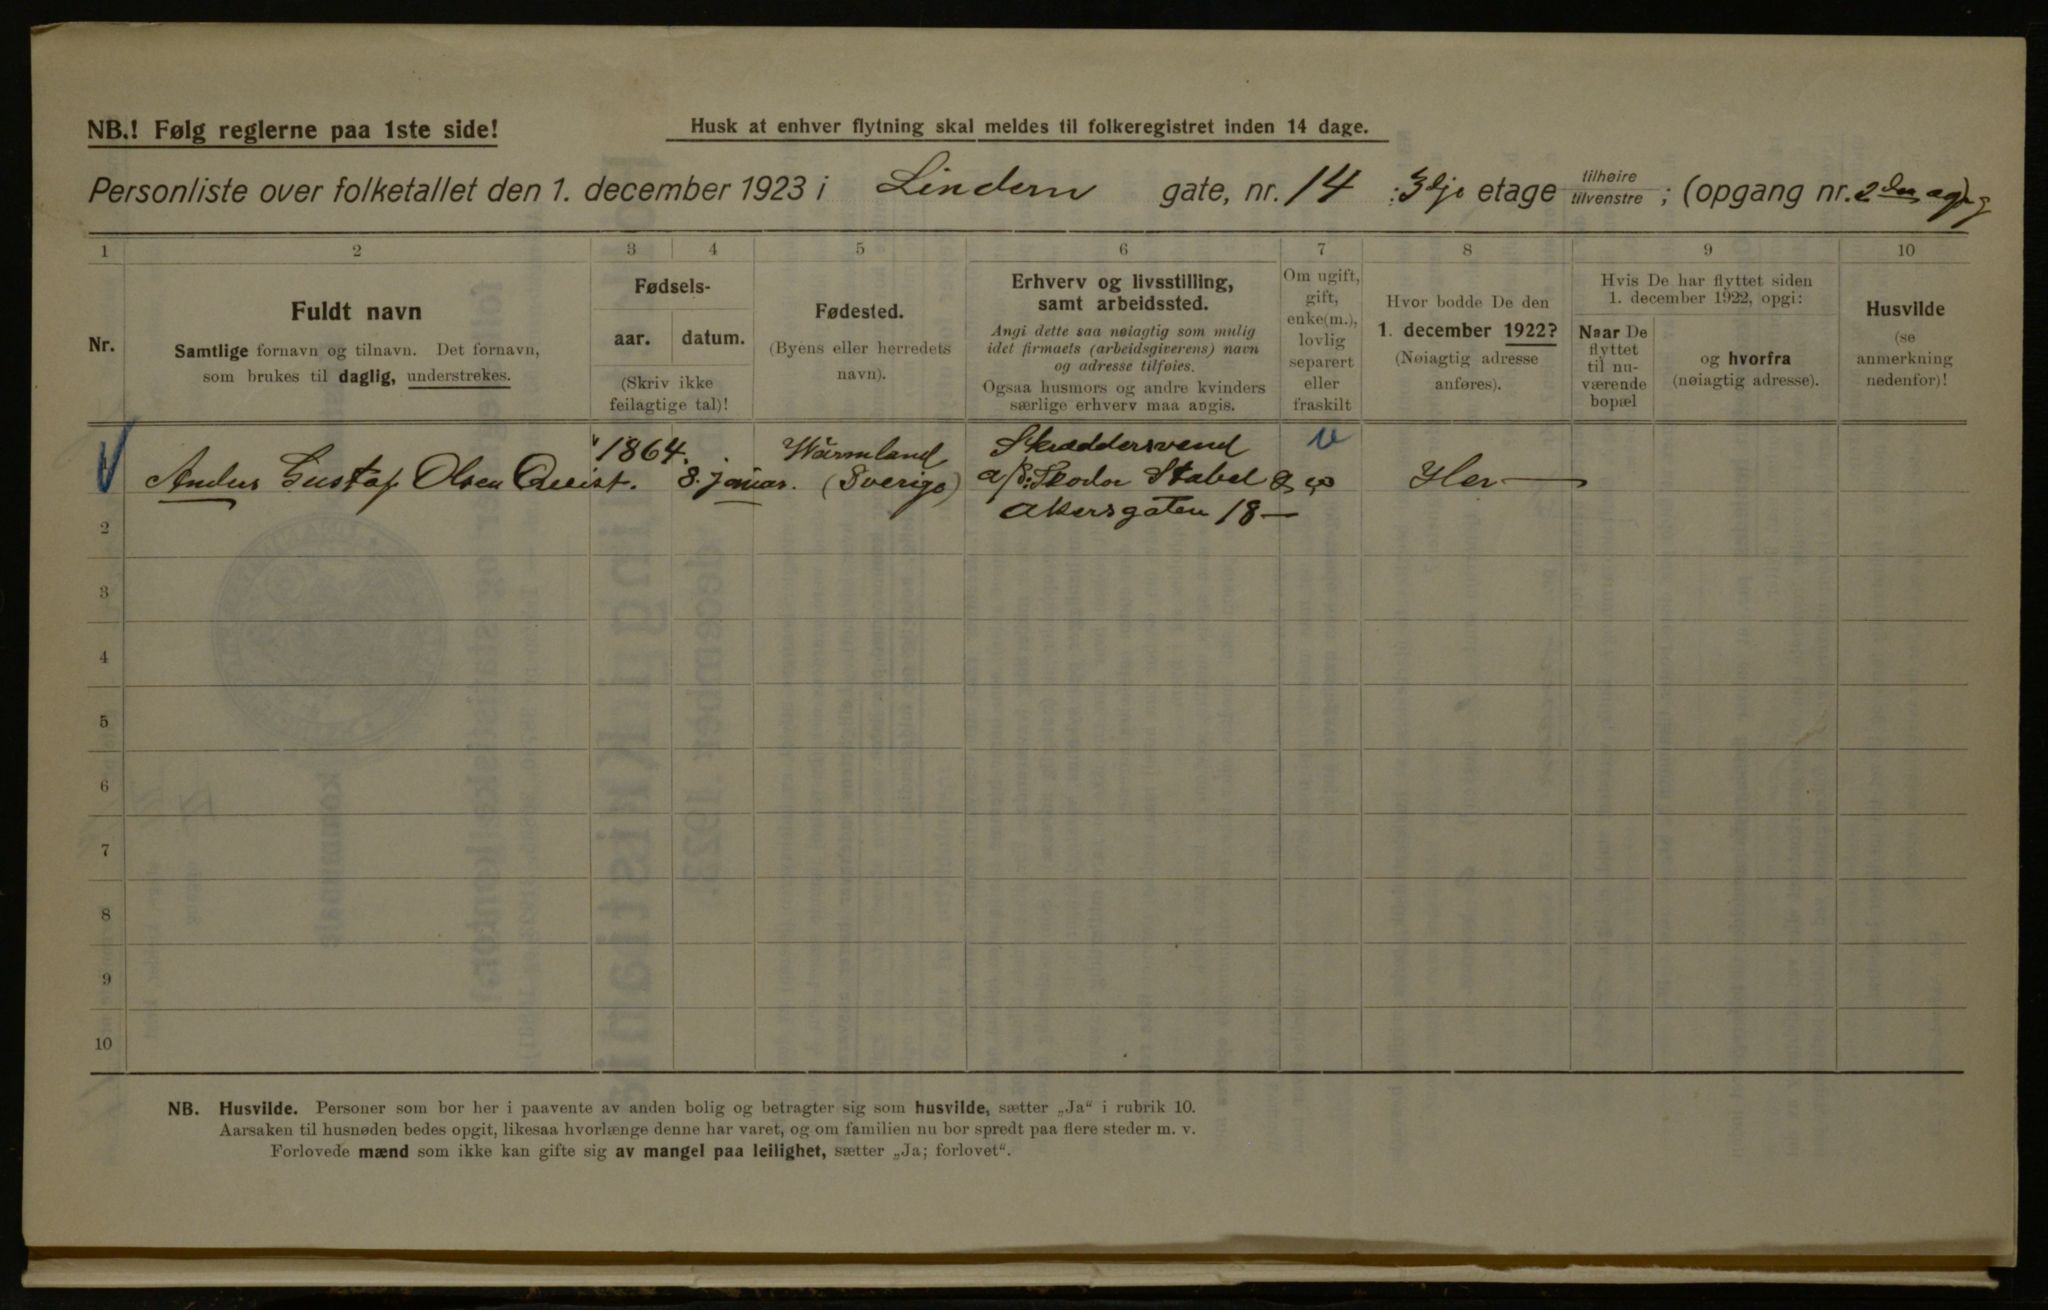 NB.! Følg reglerne paa 1ste side!
Husk at enhver flytning skal meldes til folkeregistret inden 14 dage.
Personliste over folketallet den 1. december 1923 i Lindern gate, nr. 14 : 3dje etage tilhøire tilvenstre ; (opgang nr. 2den
1 2 3 4 5 6 7 8 9 10
Nr.
Fuldt navn
Samtlige fornavn og tilnavn. Det fornavn,
som brukes til daglig, understrekes.
Fødsels-
aar. datum.
(Skriv ikke
feilagtige tal)!
Fødested.
(Byens eller herredets
navn).
Erhverv og livsstilling,
samt arbeidssted.
Angi dette saa nøiagtig som mulig
idet firmaets (arbeidsgiverens) navn
og adresse tilføies.
Ogsaa husmors og andre kvinders
særlige erhverv maa angis.
Om ugift,
gift,
enke(m.),
lovlig
separert
eller
fraskilt
Hvor bodde De den
1. december 1922?
(Nøiagtig adresse
anføres).
Hvis De har flyttet siden
1. december 1922, opgi:
Naar De
flyttet
til nu-
værende
bopæl
og hvorfra
(nøiagtig adresse).
Husvilde
(se
anmerkning
nedenfor)!
1864. Wärmland Skræddersvend
Andus Gustaf Olsen Qveist. 8. januar. (Sverige) a/s: Teodor Stabel & co Her
2 Akersgaten 18
3
4
5
6
7
8
9
10
NB. Husvilde. Personer som bor her i paavente av anden bolig og betragter sig som husvilde, sætter „Ja“ i rubrik 10.
Aarsaken til husnøden bedes opgit, likesaa hvorlænge denne har varet, og om familien nu bor spredt paa flere steder m. v.
Forlovede mænd som ikke kan gifte sig av mangel paa leilighet, sætter „Ja; forlovet“.